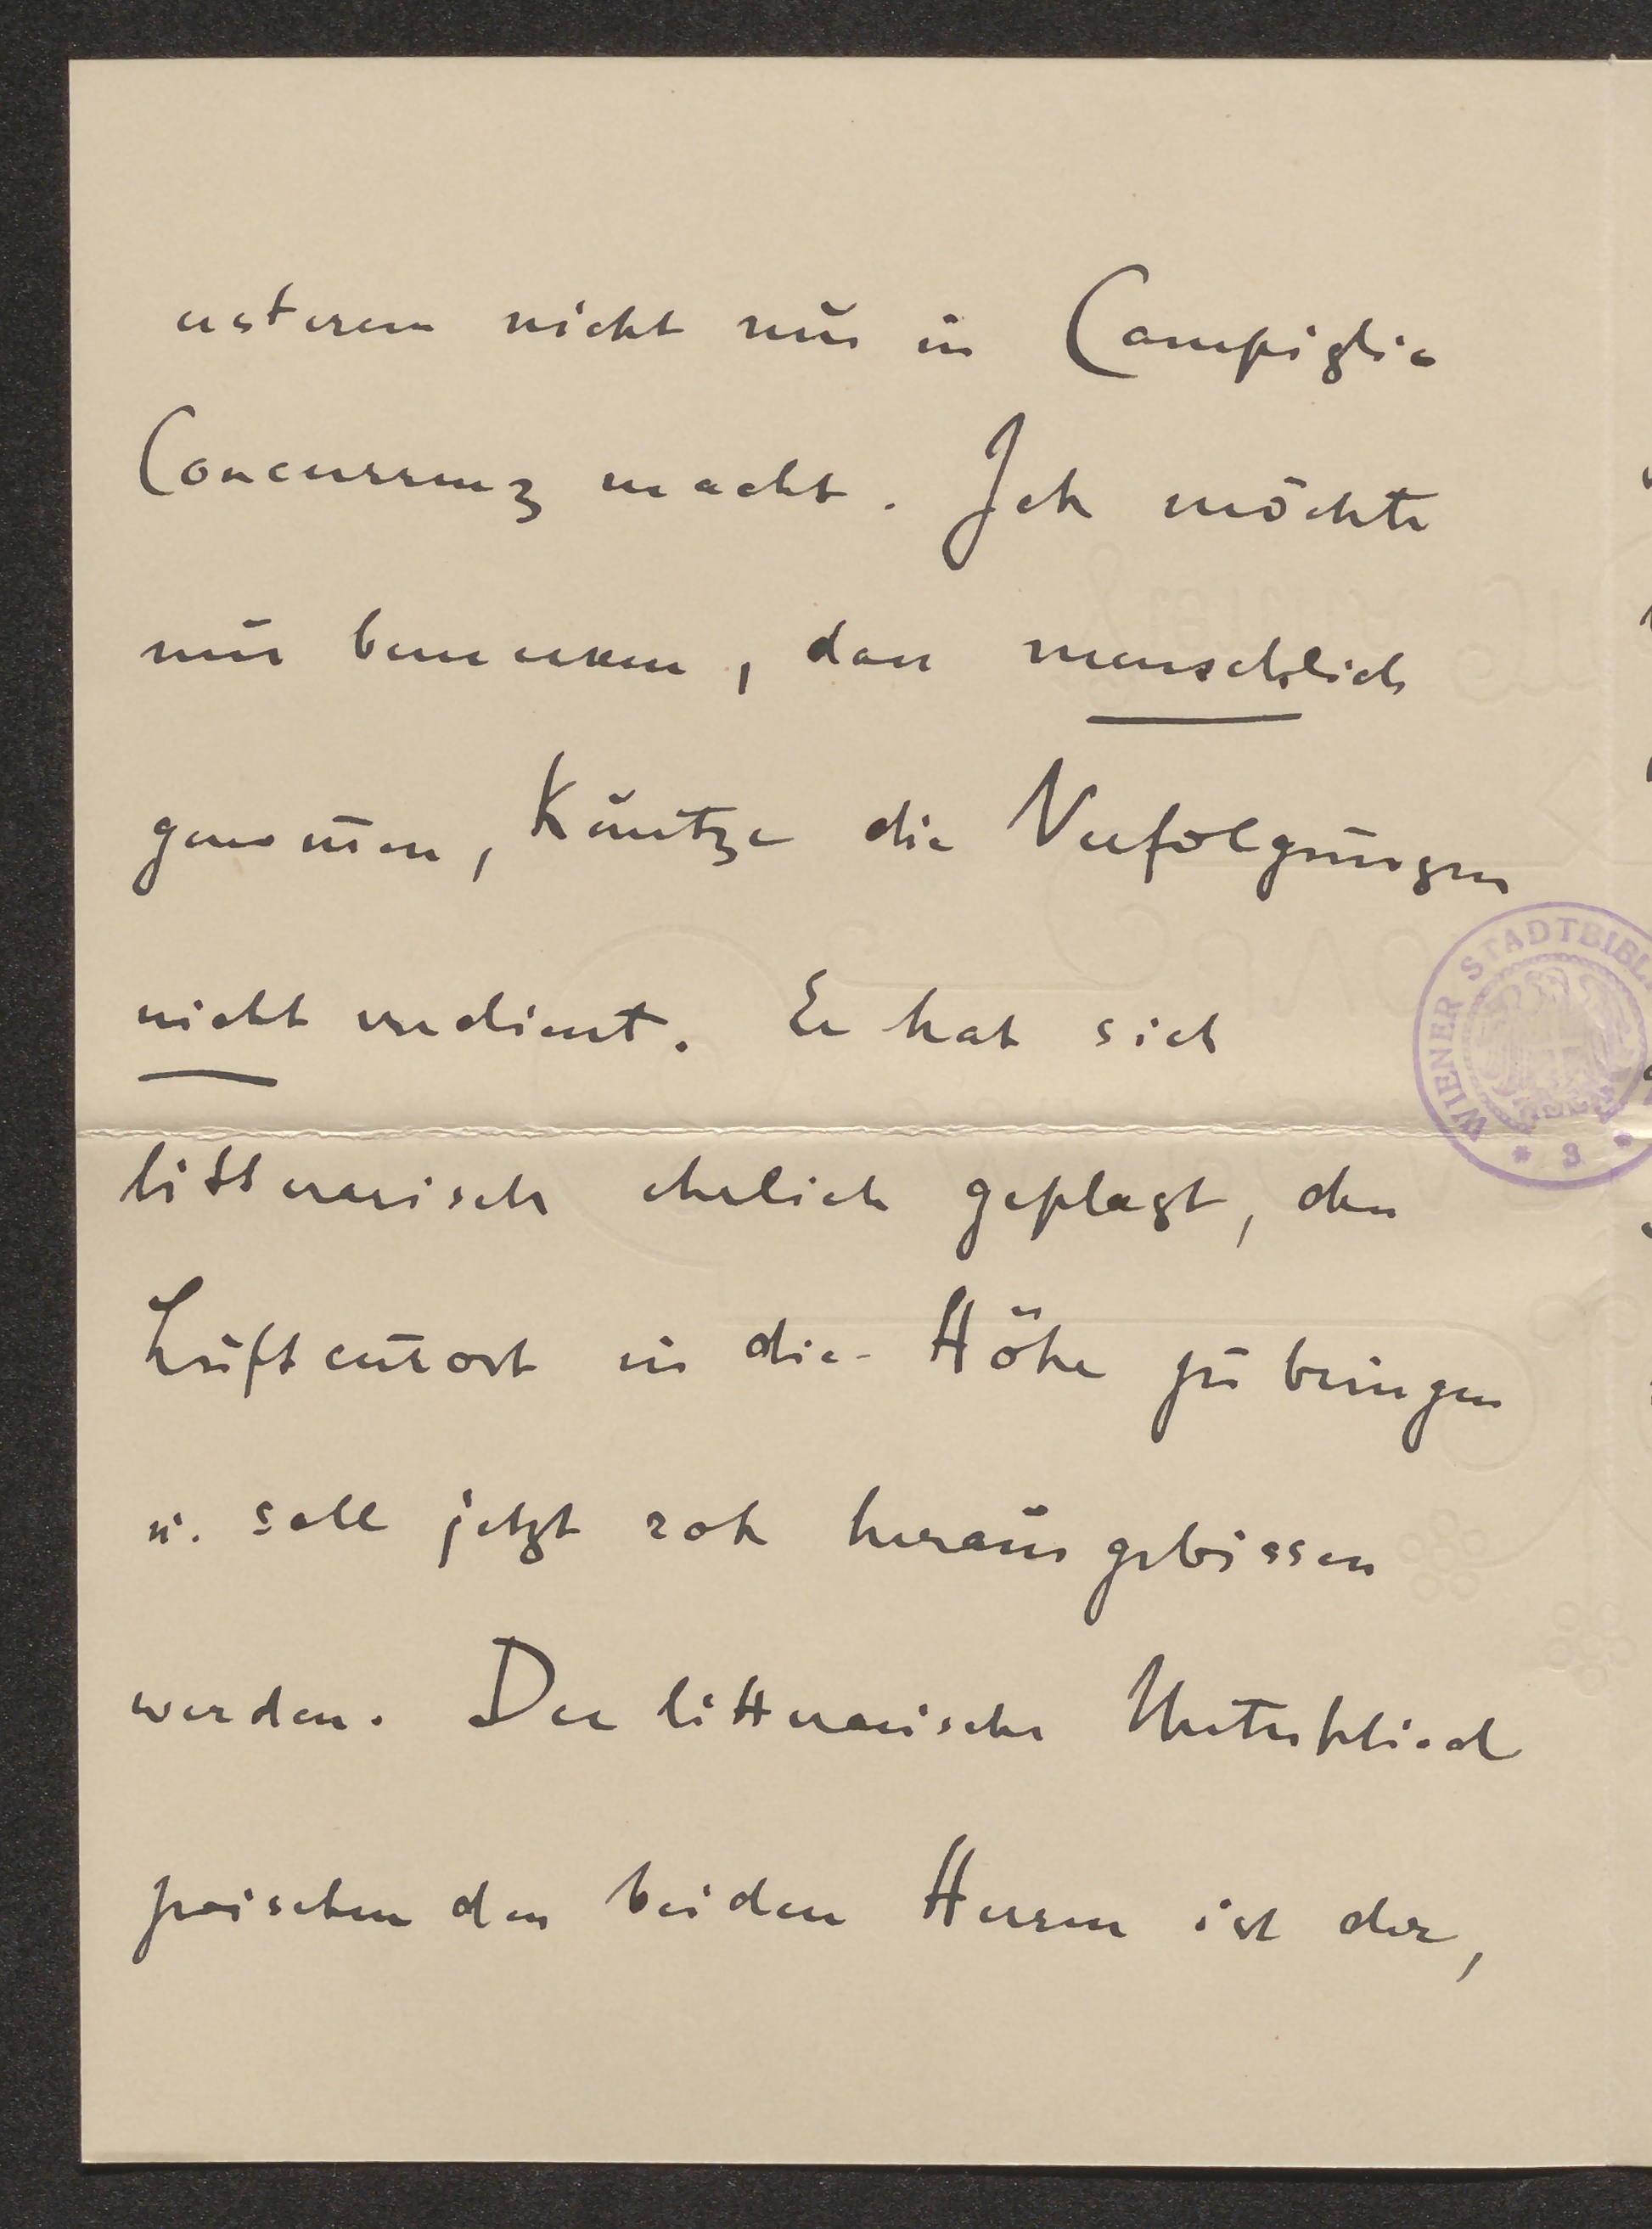 ersterem nicht nur in Campiglio
Concurrenz macht. Ich möchte
nur bemerken, dass menschlich
genom̄en, Käutze die Verfolgungen
nicht verdient. Er hat sich
litterarisch ehrlich geplagt, den
Luftcurort in die Höhe zu bringen
u. soll jetzt roh herausgebissen
werden. Der litterarische Unterschied
zwischen den beiden Herren ist der,
WIENER STADTBIBL
* 3 *